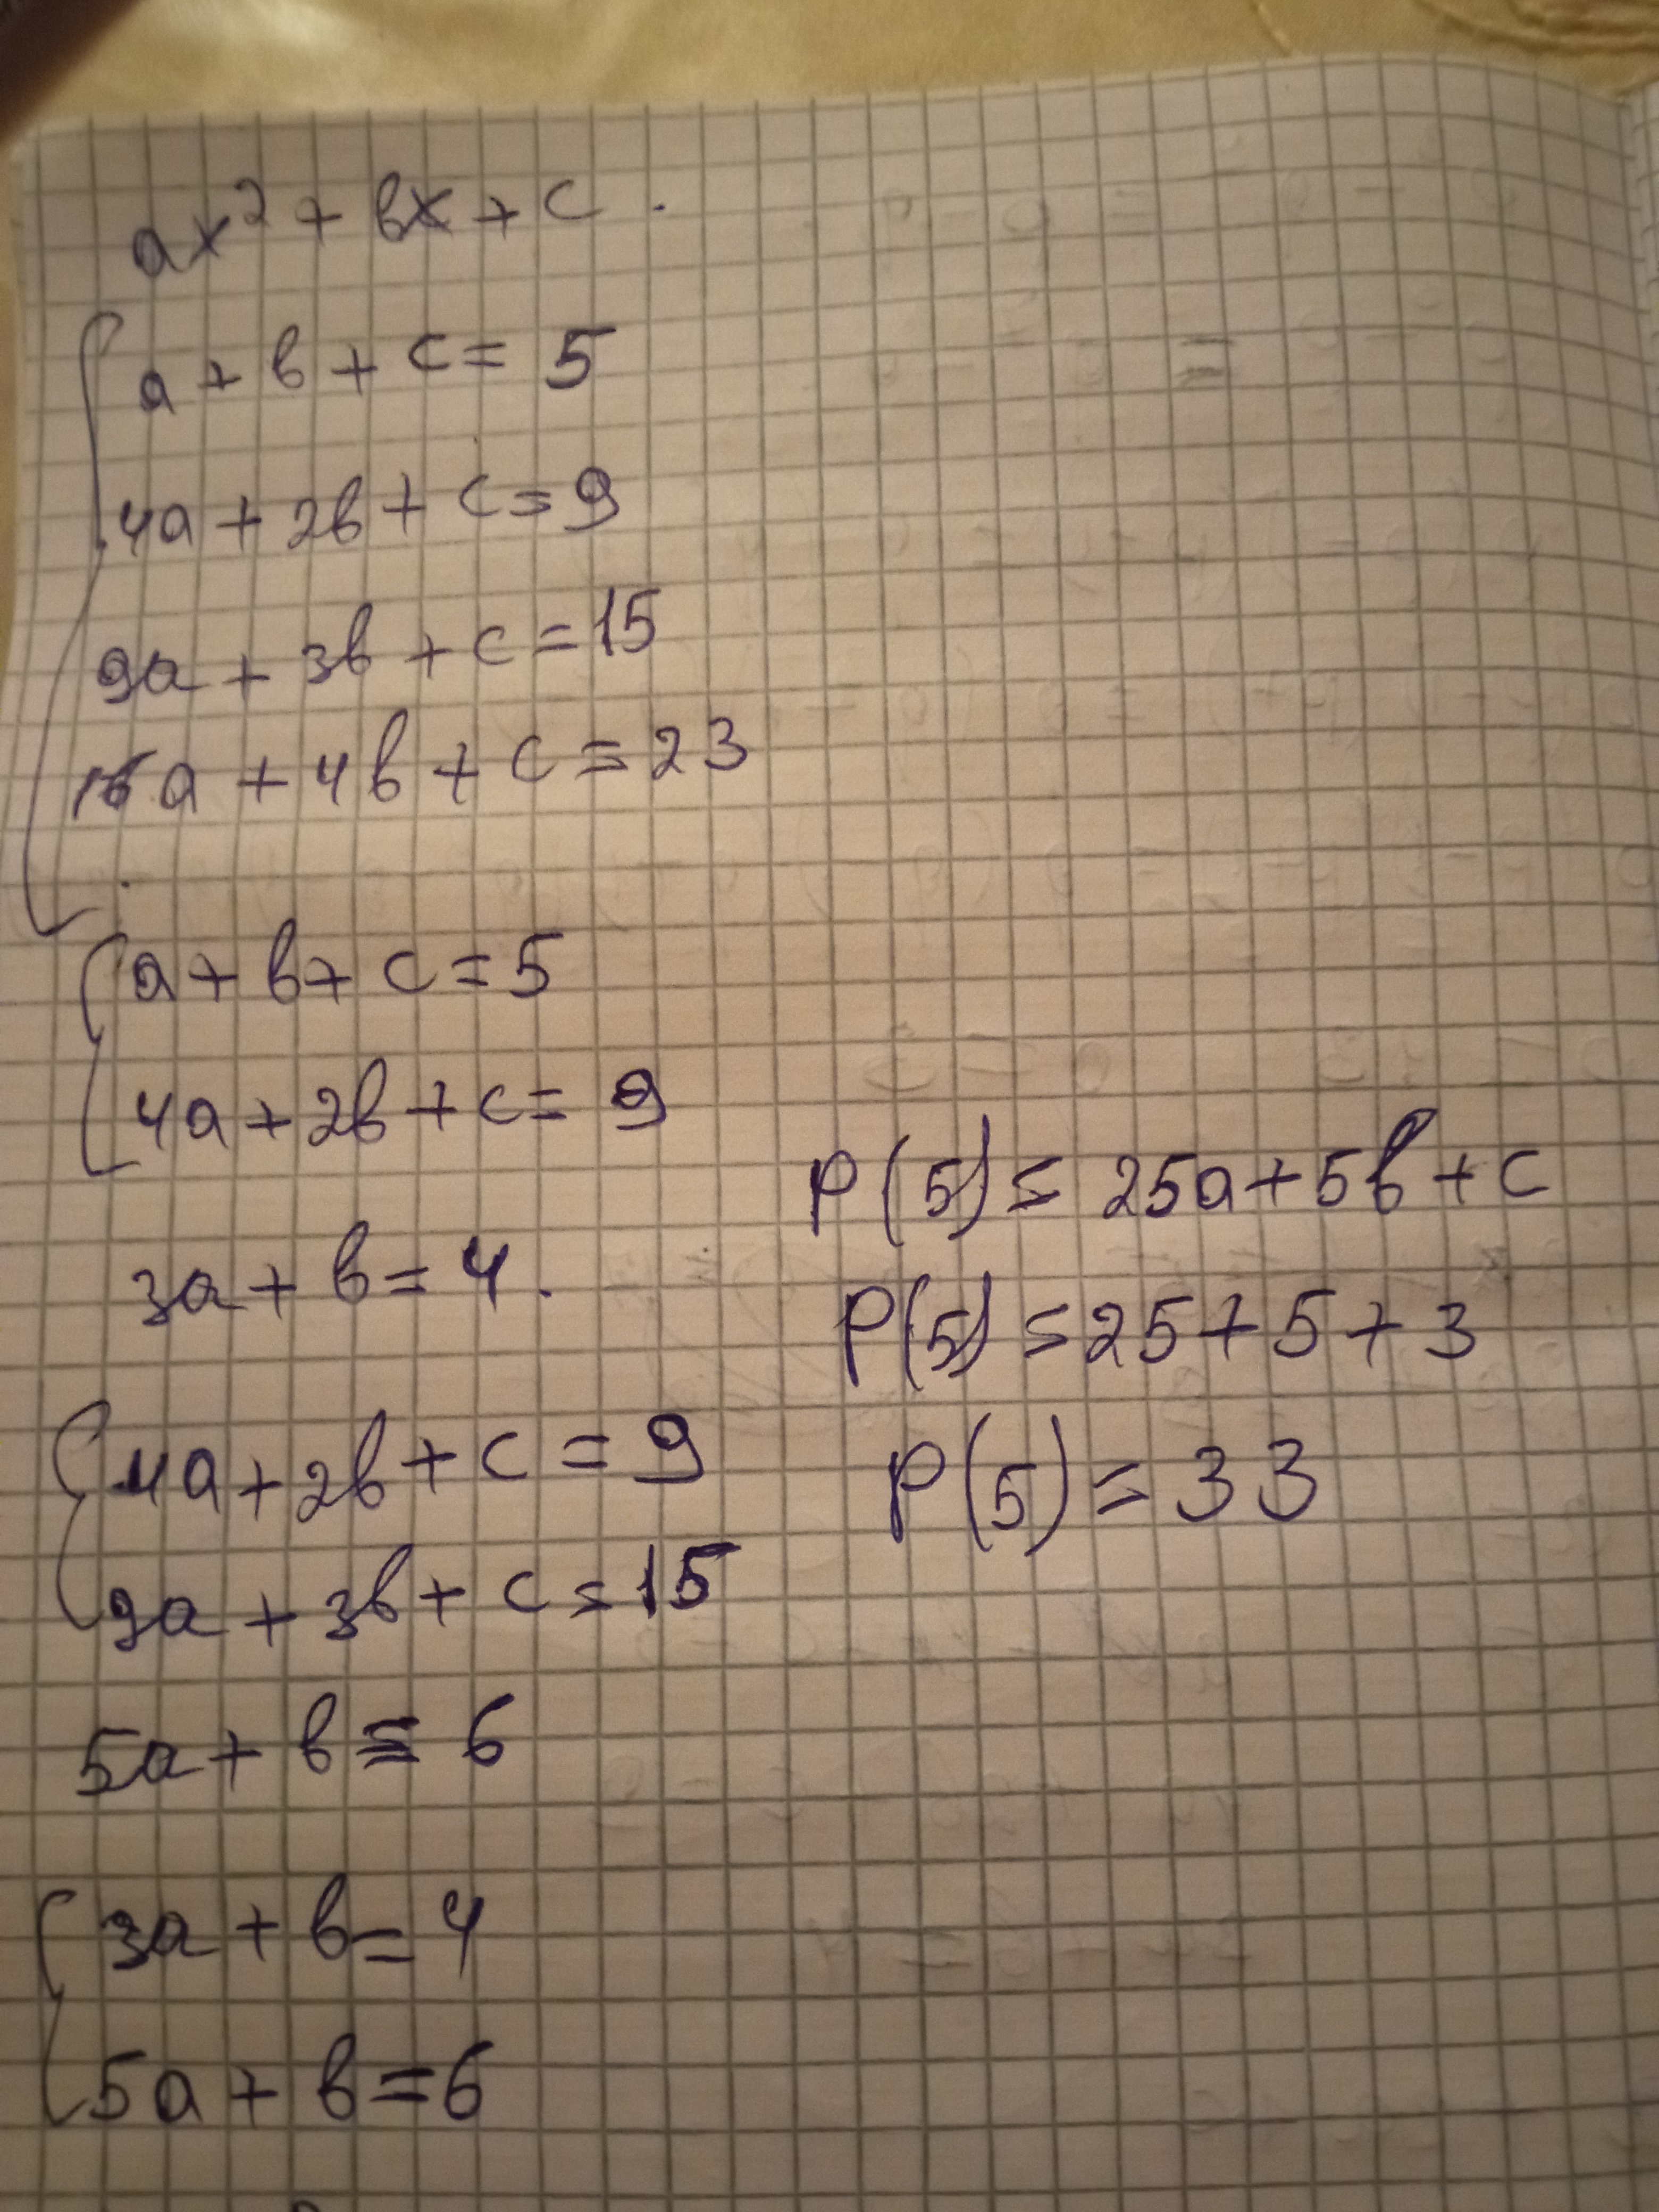 ax² + bx + c .
a + b + c = 5
4a + 2b + c = 9
9a + 3b + c = 15
16a + 4b + c = 23
a + b + c = 5
4a + 2b + c = 9
3a + b = 4.
4a + 2b + c = 9
9a + 3b + c = 15
5a + b = 6
3a + b = 4
5a + b = 6
P(5) = 25a + 5b + c
P(5) = 25 + 5 + 3
P(5) = 33